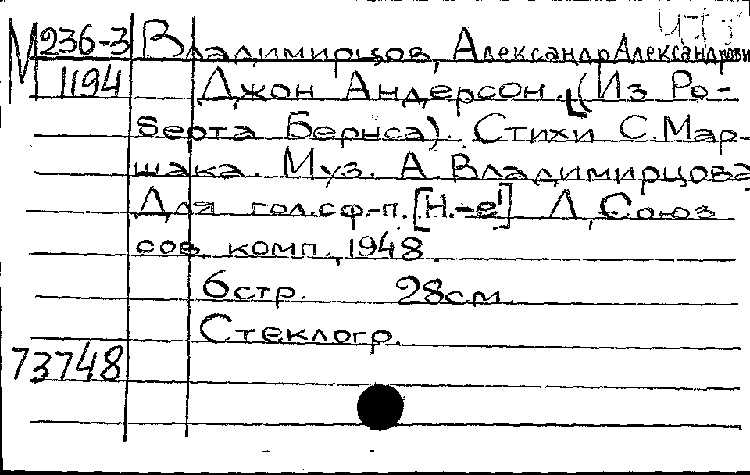 М 236-3 Владимирцов, Александр Александрович
1194 Джон Андерсон. (Из Ро-
берта Бернса). Стихи С. Мар-
шака. Муз. А. Владимирцова
Для гол. с ф.-п. [H.-e¹] Л., Союз
сов. комп., 1948.
6 стр. 28 см.
Стеклогр.
73748